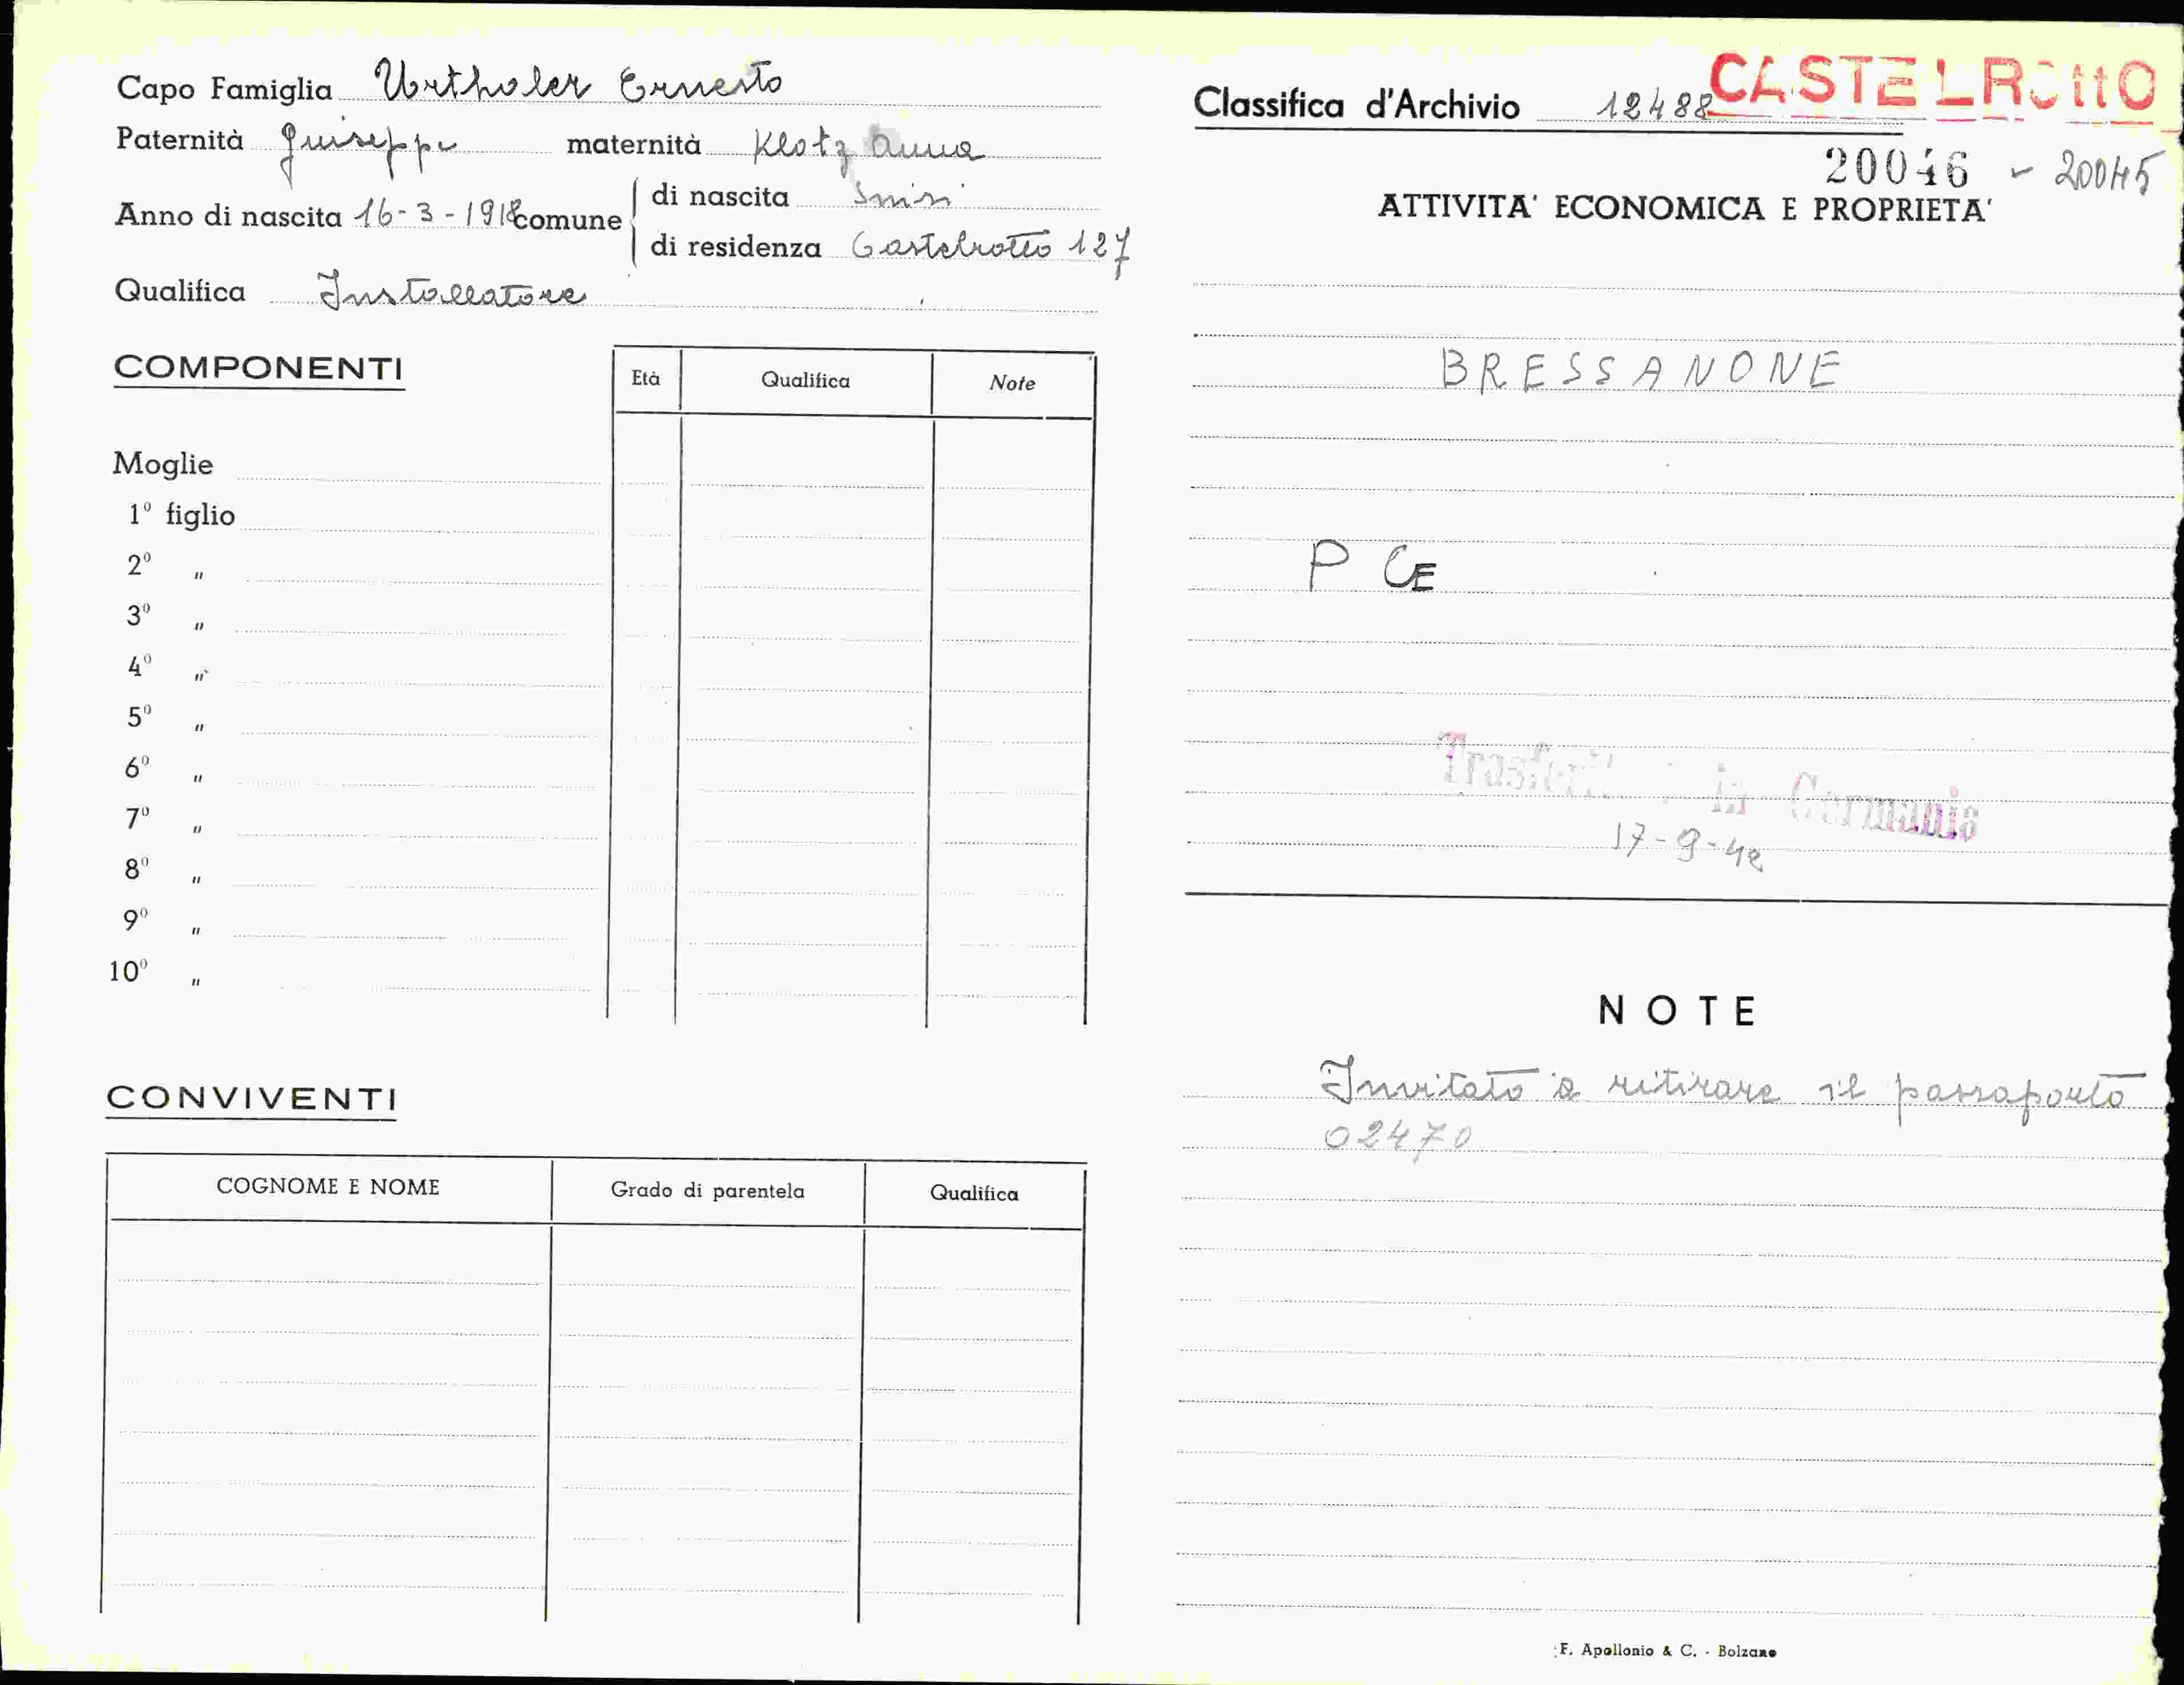 Capo Famiglia Urthaler Ernesto
Paternità Giuseppe maternità Klotz Anna
Anno di nascita 16-3-1918 comune di nascita
di residenza Castelrotto 127
Qualifica Installatore
COMPONENTI
Età Qualifica Note
Moglie
1° figlio
2° "
3° "
4° "
5° "
6° "
7° "
8° "
9° "
10° "
CONVIVENTI
COGNOME E NOME Grado di parentela Qualifica
Classifica d'Archivio 12488 CASTELROttO
20046 - 20045
ATTIVITA' ECONOMICA E PROPRIETA'
BRESSANONE
P CE
in Germania
17-9-42
NOTE
Invitato a ritirare il passaporto
02470
F. Apollonio & C. - Bolzano